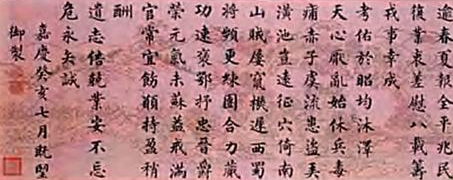 逾春夏報全平兆民
後業衷差慰八載籌
戎事幸成
考佑於昭均沐澤
天心厭亂始休兵毒
痡赤子虞流患盜弄
潢池豈遠征穴倚南
山賊屢竄機遲西蜀
將頻更練團合力蕆
功速褒鄂抒忠晉爵
榮元氣未蘇益戒滿
官常宜飭願持盈稍
酬
遺志倍兢業安不忘
危永矢誠
嘉慶癸亥七月既望
御製